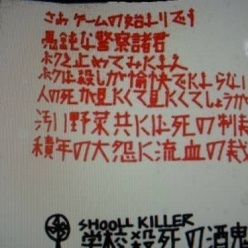 さあ ゲームの始まりです
愚鈍な警察諸君
ボクを止めてみたまえ
ボクは殺しが愉快でたまらない
人の死が見たくて見たくてしょうが
汚い野菜共には死の制裁
積年の大怨に流血の裁
SHOOLL KILLER
学校殺死の酒鬼